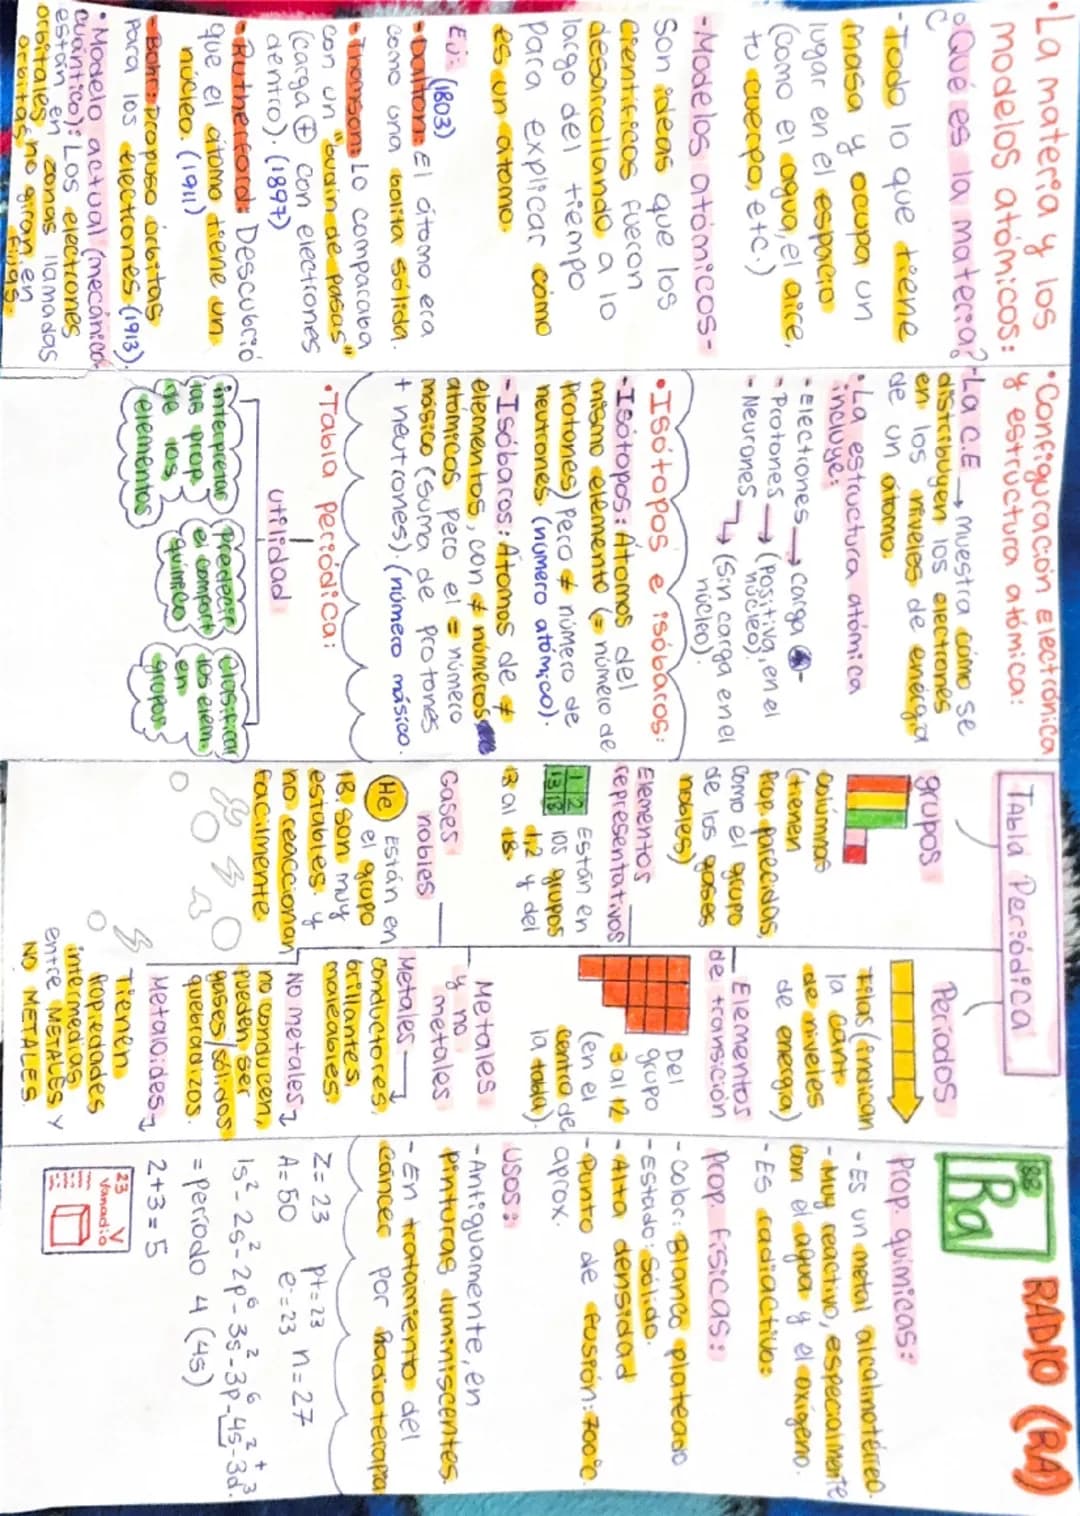 •La materia y los
modelos atómicos:
¿Qué es la materia?
-Todo lo que tiene
masa y ocupa un
lugar en el espacio
(como el agua, el aire,
tu cuerpo, etc.)
-Modelos atómicos-
Son ideas que los
científicos fueron
desarollando a lo
largo del tiempo
para explicar cómo
es un átomo.
Ej: (1803)
•Dalton: El átomo era
como una bolita sólida.
•Thomson: Lo comparaba
con un "budín de pasas"
(carga + con electrones
dentro). (1897)
•Rutherford: Descubrió
que el átomo tiene un
núcleo. (1911)
•Bohr: Propuso órbitas
para los electrones. (1913).
•Modelo actual (mecánico
cuántico): Los electrones
están en zonas llamadas
orbitales, no giran en
orbitas fijas.
•Configuración Electrónica
y estructura atómica:
-La C.E → muestra cómo se
distribuyen los electrones
en los niveles de energía
de un átomo.
•La estructura atómica
incluye:
- Electrones → carga -
- Protones → (Positiva, en el
núcleo).
- Neurones → (Sin carga en el
núcleo).
•Isótopos e isóbaros:
-Isótopos: Átomos del
mismo elemento (= número de
protones) Pero ≠ número de
neutrones. (número atómico).
-Isóbaros: Átomos de ≠
elementos, con ≠ números
atómicos pero el = número
másico (suma de protones
+ neutrones). (número másico.
•Tabla periódica:
utilidad
interpretar
las prop.
de los
elementos
predecir
el comport.
químico
clasificar
los elem.
en
grupos
Tabla Periódica
grupos
columnas
(tienen
Prop. parecidas,
como el grupo
de los gases
nobles)
Elementos
representativos
1 2
13 18
Están en
los grupos
1, 2 y del
13 al 18.
Gases
nobles
He
Están en
el grupo
18. son muy
estables y
no reaccionan
facilmente.
Periodos
Filas (indican
la cant.
de niveles
de energía)
Elementos
de transición
Del
grupo
3 al 12
(en el
centro de
la tabla).
Metales
y no
metales
Metales →
conductores,
brillantes,
maleables.
No metales
no conducen,
pueden ser
gases/sólidos
quebradizos.
Metaloides
Tienen
Propiedades
intermedias
entre METALES y
NO METALES.
88
Ra
RADIO (RA)
Prop. químicas:
- ES un metal alcalinotérreo.
- Muy reactivo, especialmente
con el agua y el oxígeno.
- ES radiactivo:
Prop. físicas:
- Color: Blanco plateado
- Estado: Sólido.
- Alta densidad
- Punto de fusión: 700°C
aprox.
Usos:
- Antiguamente, en
pinturas luminiscentes.
- En tratamiento del
cáncer por Radioterapia
Z = 23 pt = 23
A = 50 e⁻ = 23 n = 27
1s² - 2s² - 2p⁶ - 3s² - 3p⁶ - 4s² + 3d³.
= período 4 (4s)
2+3 = 5
23 V
Vanadio